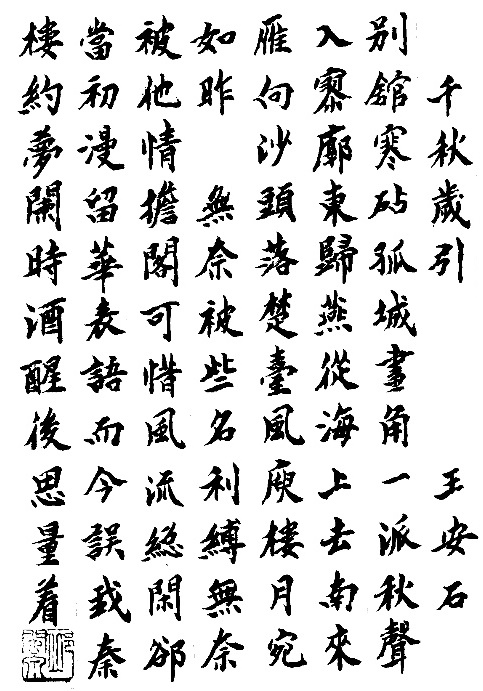 千秋歲引 王安石
別舘寒砧孤城畫角一派秋聲
入寥廓東歸燕從海上去南來
雁向沙頭落楚臺風庾樓月宛
如昨 無奈被些名利縛無奈
被他情擔閣可惜風流総閑卻
當初漫留華表語而今誤我秦
樓約夢闌時酒醒後思量着